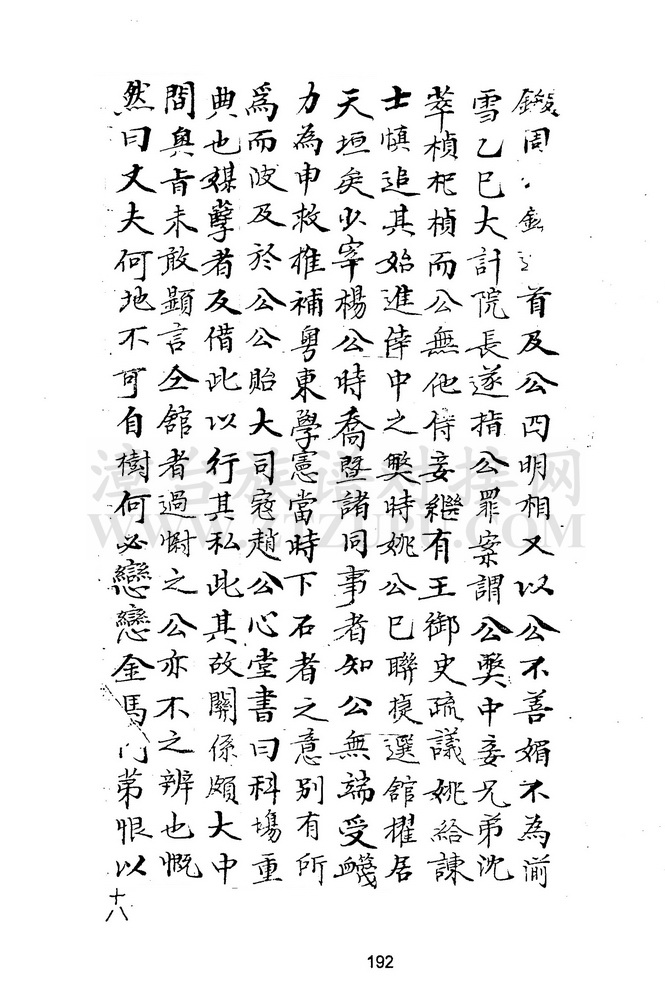 鍛周首及公四明相又以公不善媚不為湔
雪乙巳大計院長遂指公罪案謂公獘中妾兄弟沈
萃楨杞楨而公無他侍妾繼有王御史疏議姚給諫
士慎追其始進倖中之獘時姚公已聯㨗選館櫂居
天垣矣少宰楊公時喬暨諸同事者知公無端受衊
力為申救推補粤東學憲當時下石者之意別有所
爲而波及於公公貽大司宼趙公心堂書曰科塲重
典也媒孽者反借此以行其私此其故關係頗大中
間奥旨未敢顯言仝館者過慰之公亦不之辨也慨
然曰丈夫何地不可自樹何必戀戀金馬门苐恨以
十八
192
漳台族谱对接网
WWW.ZTZUPU.COM